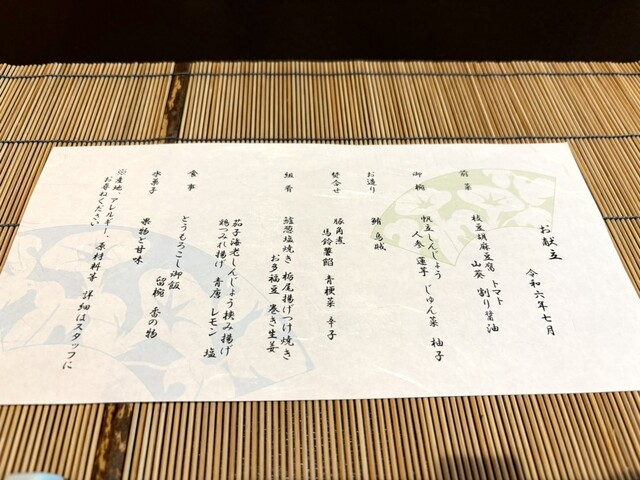 お献立
令和六年七月
前菜
枝豆胡麻豆腐 トマト
山葵 割り醤油
御椀
帆立しんじょう
人参 蓮芋 じゅん菜 柚子
お造り
鮪 烏賊
焚合せ
豚角煮
馬鈴薯餡 青梗菜 辛子
組肴
鱸葱塩焼き 栃尾揚げつけ焼き
お多福豆 巻き生姜
茄子海老しんじょう挟み揚げ
鶏つみれ揚げ 青唐 レモン 塩
食事
とうもろこし御飯
留椀 香の物
水菓子
果物と甘味
※産地、アレルギー、原材料等 詳細はスタッフに
お尋ねください